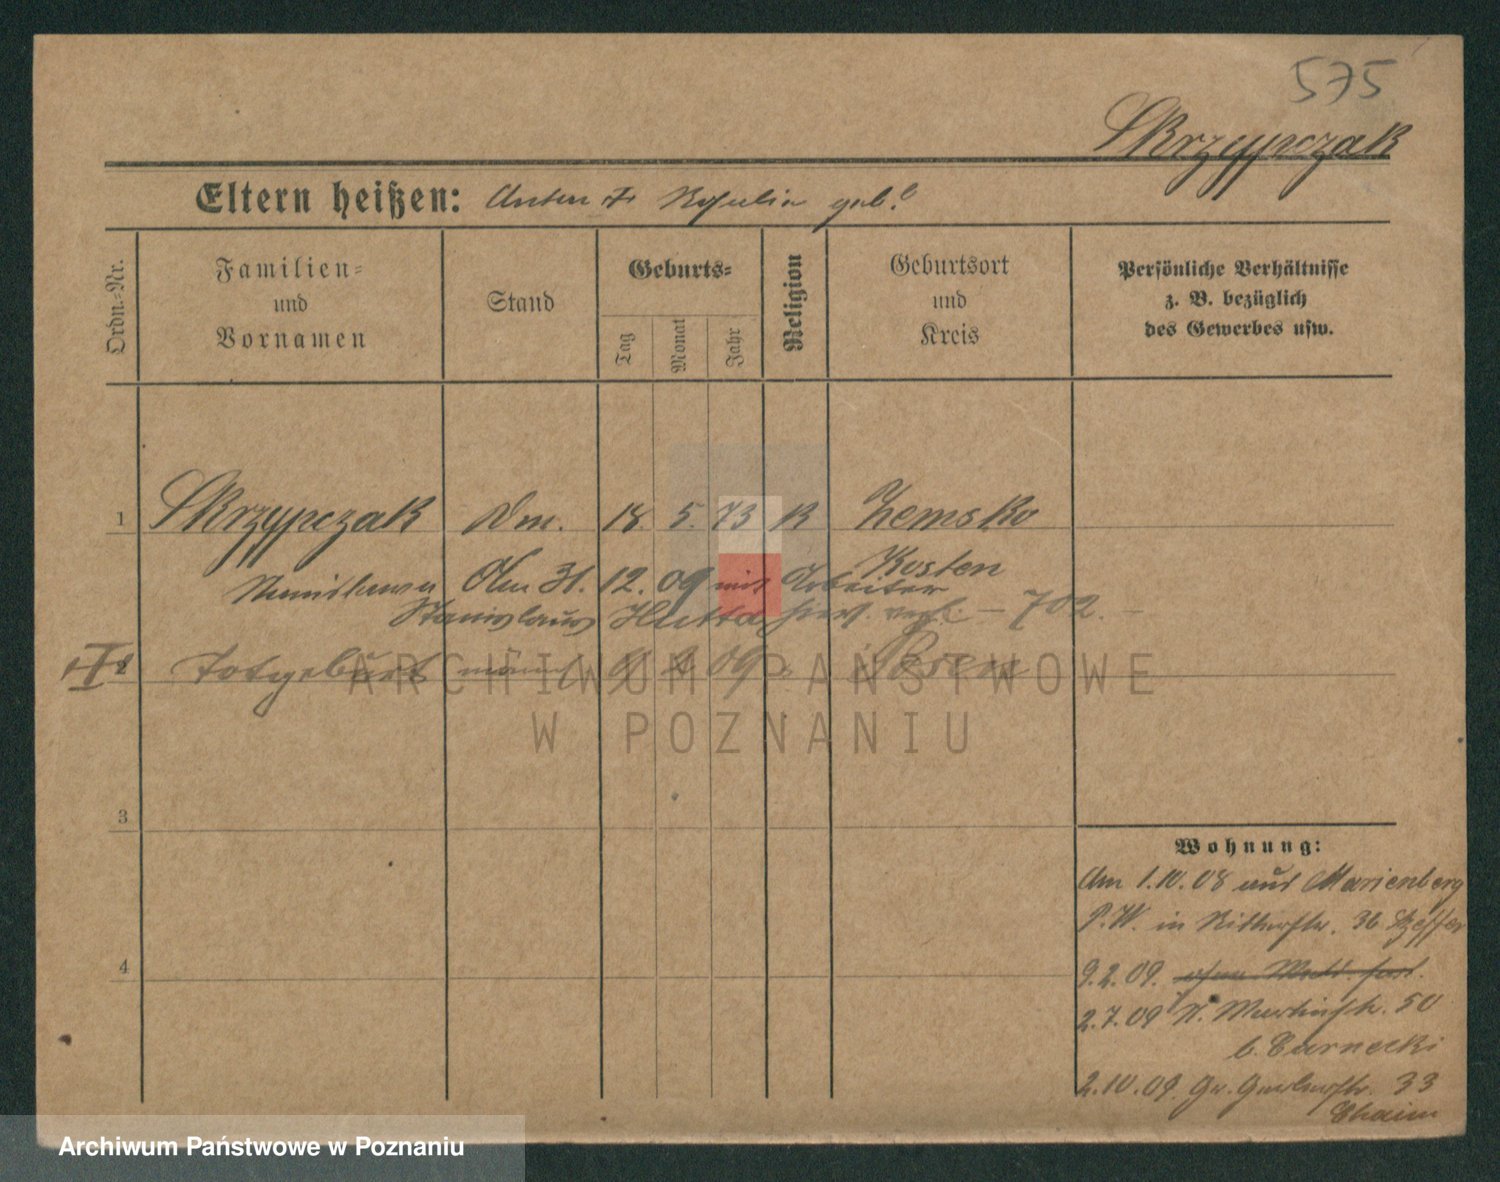 575
Skrzypczak
Eltern heißen: Anton u. geb.?
Ordn.-Nr.
Familien-
und
Vornamen
Stand
Geburts-
Tag
Monat
Jahr
Religion
Geburtsort
und
Kreis
Persönliche Verhältnisse
z. B. bezüglich
des Gewerbes usw.
1 Skrzypczak Dm. 18. 5. 73 K Zemsko
Stanislawa Am 31. 12. 09 mit Arbeiter Kosten
Stanislaus Hutta verh. — 702. —
Totgeburt männl 9 2 09 Posen
3
4
ARCHIWUM PAŃSTWOWE
W POZNANIU
Wohnung:
Am 1.10.08 aus Marienberg
P.W. in Ritterstr. 36
9.2.09.
2.7.09 St. Martinstr. 50
b. Czarnecki
2.10.09. Gr. Gerberstr. 33
Archiwum Państwowe w Poznaniu